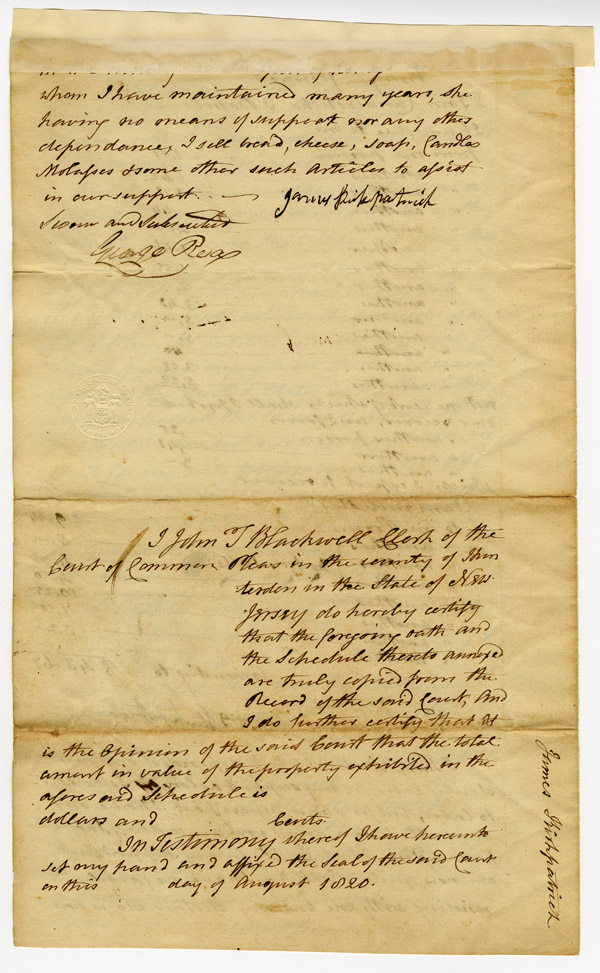 whom I have maintained many years, she
having no means of support nor any other
dependance, I sell bread, cheese, soap, Candles
Molasses & some other such Articles to assist
in our support. —
James Kirkpatrick
Sworn and Subscribed
George Rea
I John T Blackwell Clerk of the
Court of Common Pleas in the county of Hun
terdon in the State of New
Jersey do hereby certify
that the foregoing oath and
the Schedule thereto annexed
are truly copied from the
Record of the said Court, And
I do further certify that it
is the Opinion of the said Court that the total
amount in value of the property exhibited in the
aforesaid Schedule is
dollars and Cents.
In Testimony whereof I have hereunto
set my hand and affixed the Seal of the said Court
on this day of August 1820.
James Kirkpatrick